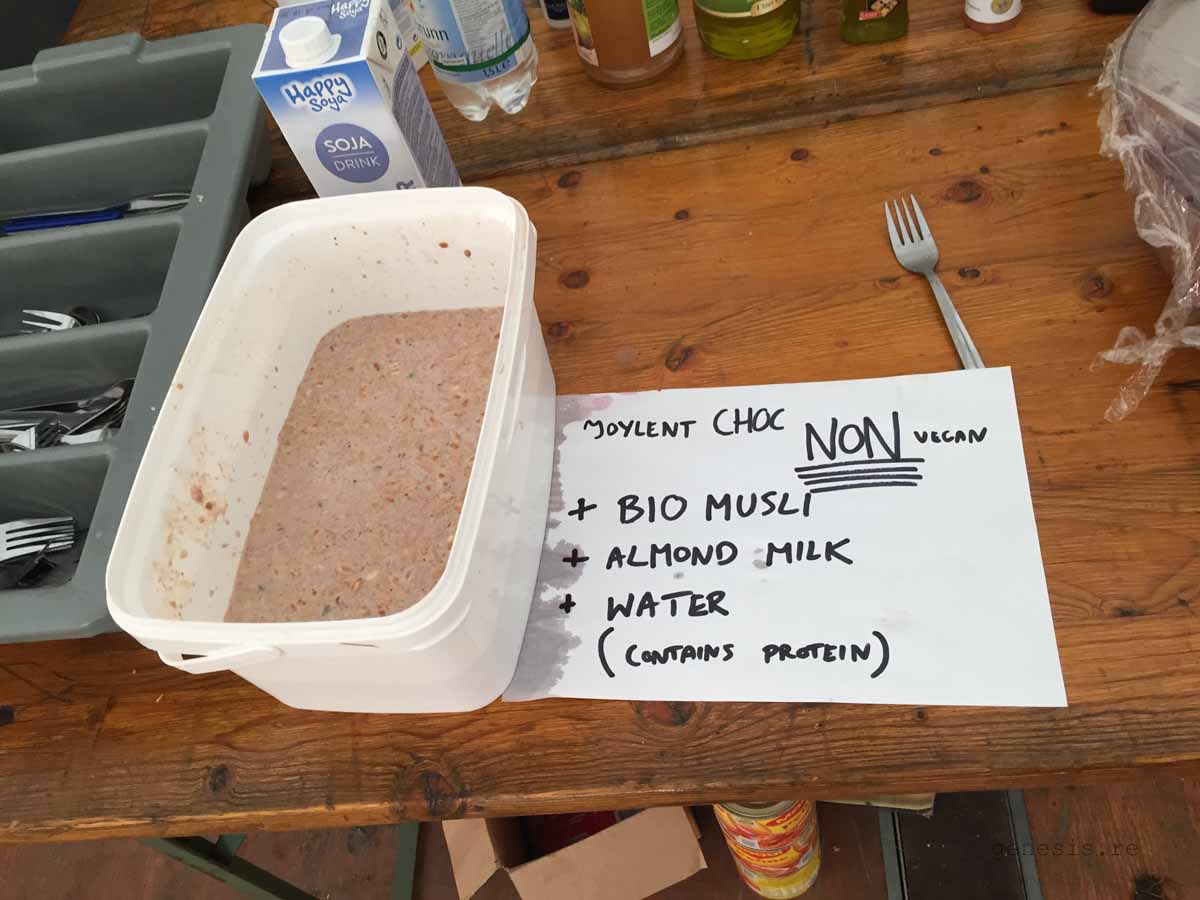 Happy
Soya
Happy
Soya
SOJA
DRINK
unn
1,5L e
JOYLENT CHOC NON VEGAN
+ BIO MUSLI
+ ALMOND MILK
+ WATER
(CONTAINS PROTEIN)
genesis.re